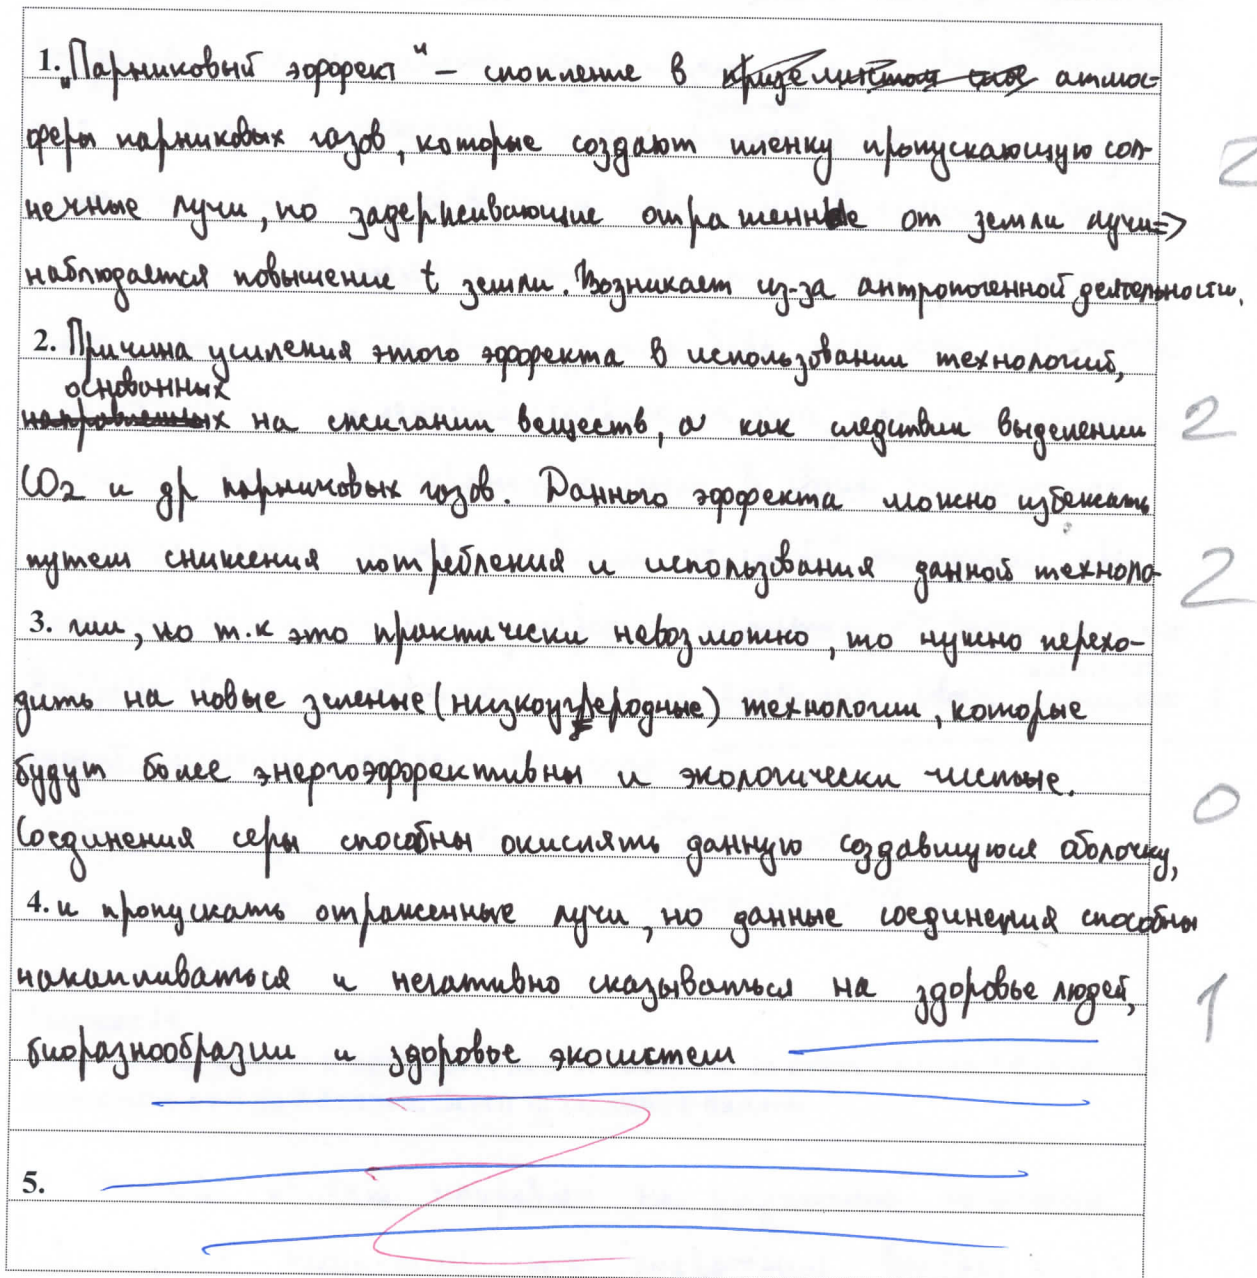 1. „Парниковый эффект“ – скопление в атмос-
феры парниковых газов, которые создают пленку пропускающую сол-
2
нечные лучи, но задерживающие отраженные от земли лучи =>
наблюдается повышение t земли. Возникает из-за антропогенной деятельности.
2. Причина усиления этого эффекта в использовании технологий,
основанных
направленных на сжигании веществ, а как следствии выделении
2
CO2 и др парниковых газов. Данного эффекта можно избежать
путем снижения потребления и использования данной техноло-
2
3. гии, но т.к это практически невозможно, то нужно перехо-
дить на новые зеленые (низкоуглеродные) технологии, которые
будут более энергоэффективны и экологически чистые.
0
Соединения серы способны окислять данную создавшуюся оболочку,
4. и пропускать отраженные лучи, но данные соединения способны
накапливаться и негативно сказываться на здоровье людей,
1
биоразнообразии и здоровье экосистем
5.